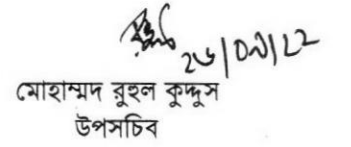 ২৬/০৯/২২
মোহাম্মদ রুহুল কুদ্দুস
উপসচিব